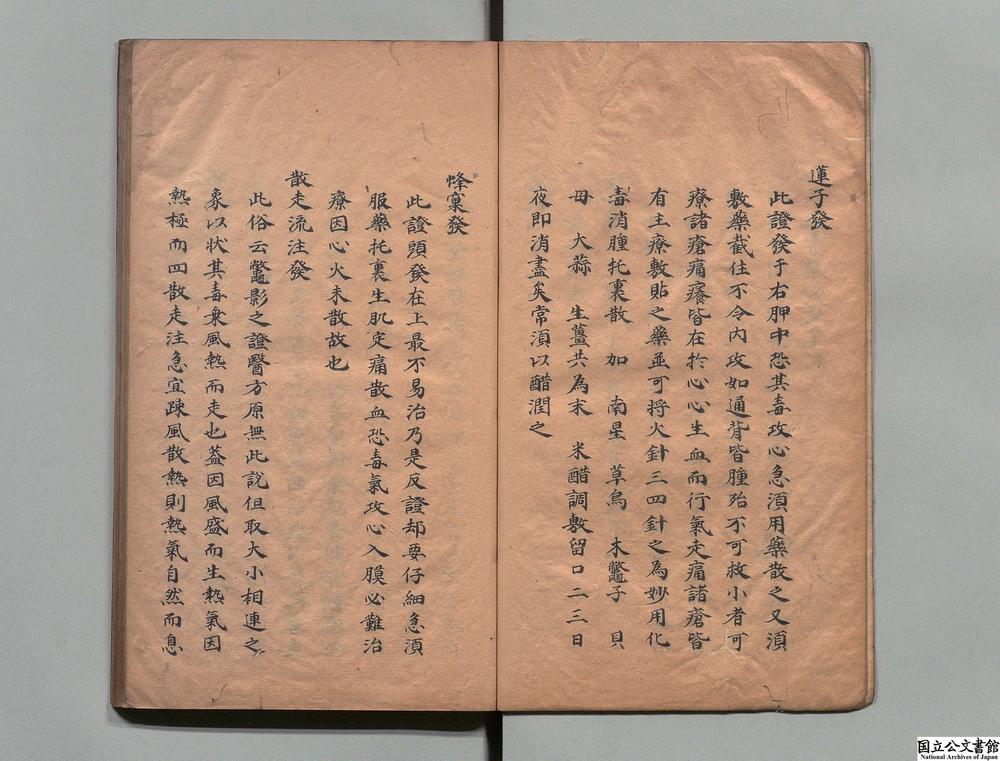 蓮子發
此證發于右胛中恐其毒攻心急須用藥散之又須
敷藥截住不令內攻如通背皆腫殆不可救小者可
療諸瘡痛癢皆在於心心生血而行氣走痛諸瘡皆
有主療敷貼之藥並可將火針三四針之為妙用化
毒消腫托裏散 加 南星 草烏 木鱉子 貝
母 大蒜 生薑共為末 米醋調敷留口二三日
夜即消盡矣常須以醋潤之
蜂窠發
此證頭發在上最不易治乃是反證却要仔細急須
服藥托裏生肌定痛散血恐毒氣攻心入膜必難治
療因心火未散故也
散走流注發
此俗云鱉影之證醫方原無此說但取大小相連之
象以狀其毒乗風熱而走也盖因風盛而生熱氣因
熱極而四散走注急宜疎風散熱則熱氣自然而息
国立公文書館
National Archives of Japan